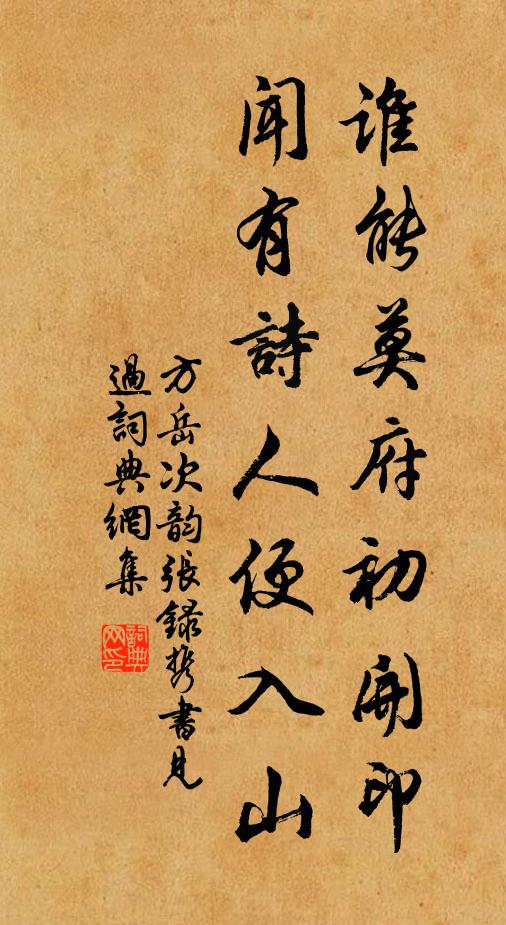 誰能莫府初開印
聞有詩人便入山
方岳次韵張録携書見
過詞典網集
詞典
网印